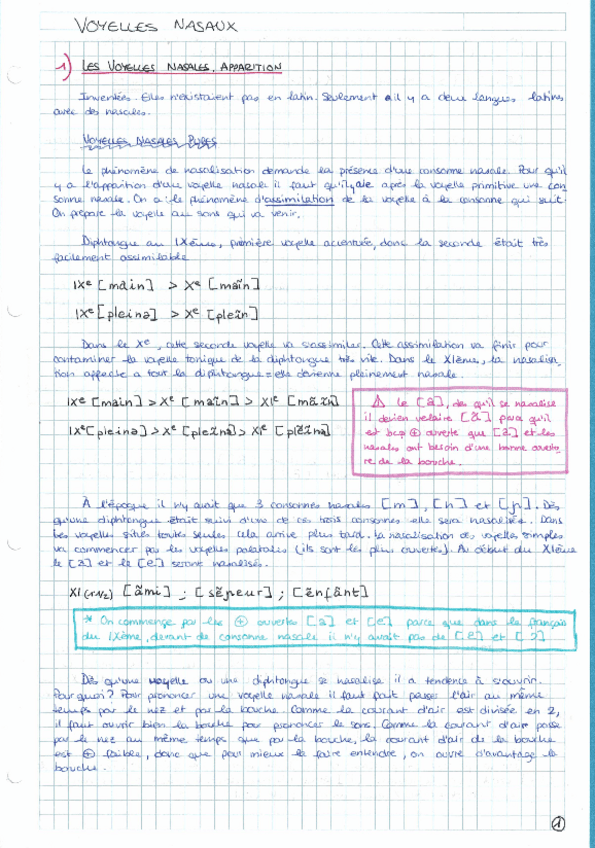 VOYELLES NASAUX
1) LES VOYELLES NASALES. APPARITION
Inventées. Elles n'existaient pas en latin. Seulement il y a deux langues latines
avec des nasales.
VOYELLES NASALES PURES
Le phénomène de nasalisation demande la présence d'une consonne nasale. Pour qu'il
y a l'apparition d'une voyelle nasale il faut qu'il y ale après la voyelle primitive une con
sonne nasale. On a le phénomène d'assimilation de la voyelle à la consonne qui suit.
On prépare la voyelle au sons qui va venir.
Diphtongue au IXème, première voyelle accentuée, donc la seconde était très
facilement assimilable
IXe [main] > Xe [maĩn]
IXe [pleinə] > Xe [pleĩn]
Dans le Xe, cette seconde voyelle va s'assimiler. Cette assimilation va finir pour
contaminer la voyelle tonique de la diphtongue très vite. Dans le XIème, la nasalisa
tion affecte a tout la diphtongue = elle devienne pleinement nasale.
IXe [main] > Xe [maĩn] > XIe [mãĩn]
IXe [pleinə] > Xe [pleĩnə] > XIe [plẽĩnə]
⚠ Le [a], dès qu'il se nasalise
il devien velaire [ɑ̃] parce qu'il
est bcp ⊕ ouverte que [a] et les
nasales ont besoin d'une bonne ouvertu
re de la bouche.
À l'époque il n'y avait que 3 consonnes nasales [m], [n] et [ɲ]. Dès
qu'une diphtongue était suivi d'une de ces trois consonnes elle sera nasalisée. Dans
les voyelles sities toutes seules cela arrive plus tard. La nasalisation des voyelles simples
va commencer par les voyelles palatales (ils sont les plus ouvertes). Au début du XIème
le [a] et le [e] seront nasalisés.
XI (1r 1/2) [ãmi] ; [sẽɲeur] ; [ẽnfãnt]
* On commence par les ⊕ ouvertes [a] et [e] parce que dans le français
du IXème, devant de consonne nasale il n'y avait pas de [ɛ] et [ɔ]
Dès qu'une voyelle ou une diphtongue se nasalise il a tendence à s'ouvrir.
Pourquoi? Pour prononcer une voyelle nasale il faut fait passer l'air au même
temps par le nez et par la bouche. Comme la courant d'air est divisée en 2,
il faut ouvrir bien la bouche pour prononcer le sons. Comme la courant d'air passe
par le nez au même temps que par la bouche, la courant d'air de la bouche
est ⊕ faible, donc que pour mieux la faire entendre, on ouvre d'avantage la
bouche.
1